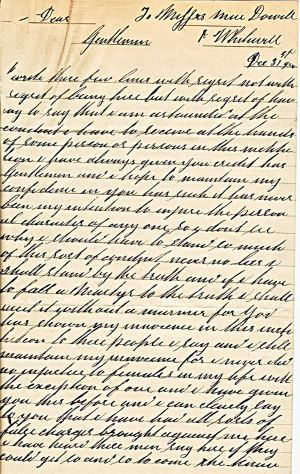 To Messrs Mac Dowell
Dear
Gentlemen & Whitwell
Dec 31st
I wrote these few lines with regret not with
regret of being here but with regret of hav
ing to say that i am astounded at the
conduct i have to receive at the hands
of some person or persons in this institu
tion i have always given you credit has
Gentlemen and i hope to maintain my
confidence in you has such it has never
been my intention to injure the person
al character of any one so i dont see
why i should have to stand so much
of this sort of conduct never no less i
shall stand by the truth and if i have
to fall a Martyr to the truth i shall
meet it without a murmer for God
has shown my innocence in this insti
tution to these people i say and i still
maintain my innocence for i never did
no injustice to females in my life with
the exception of one and i have given
you this before and i can clearly say
to you that i have had all sorts of
false charges brought against me here
i have heard these men say here if they
could get to come the